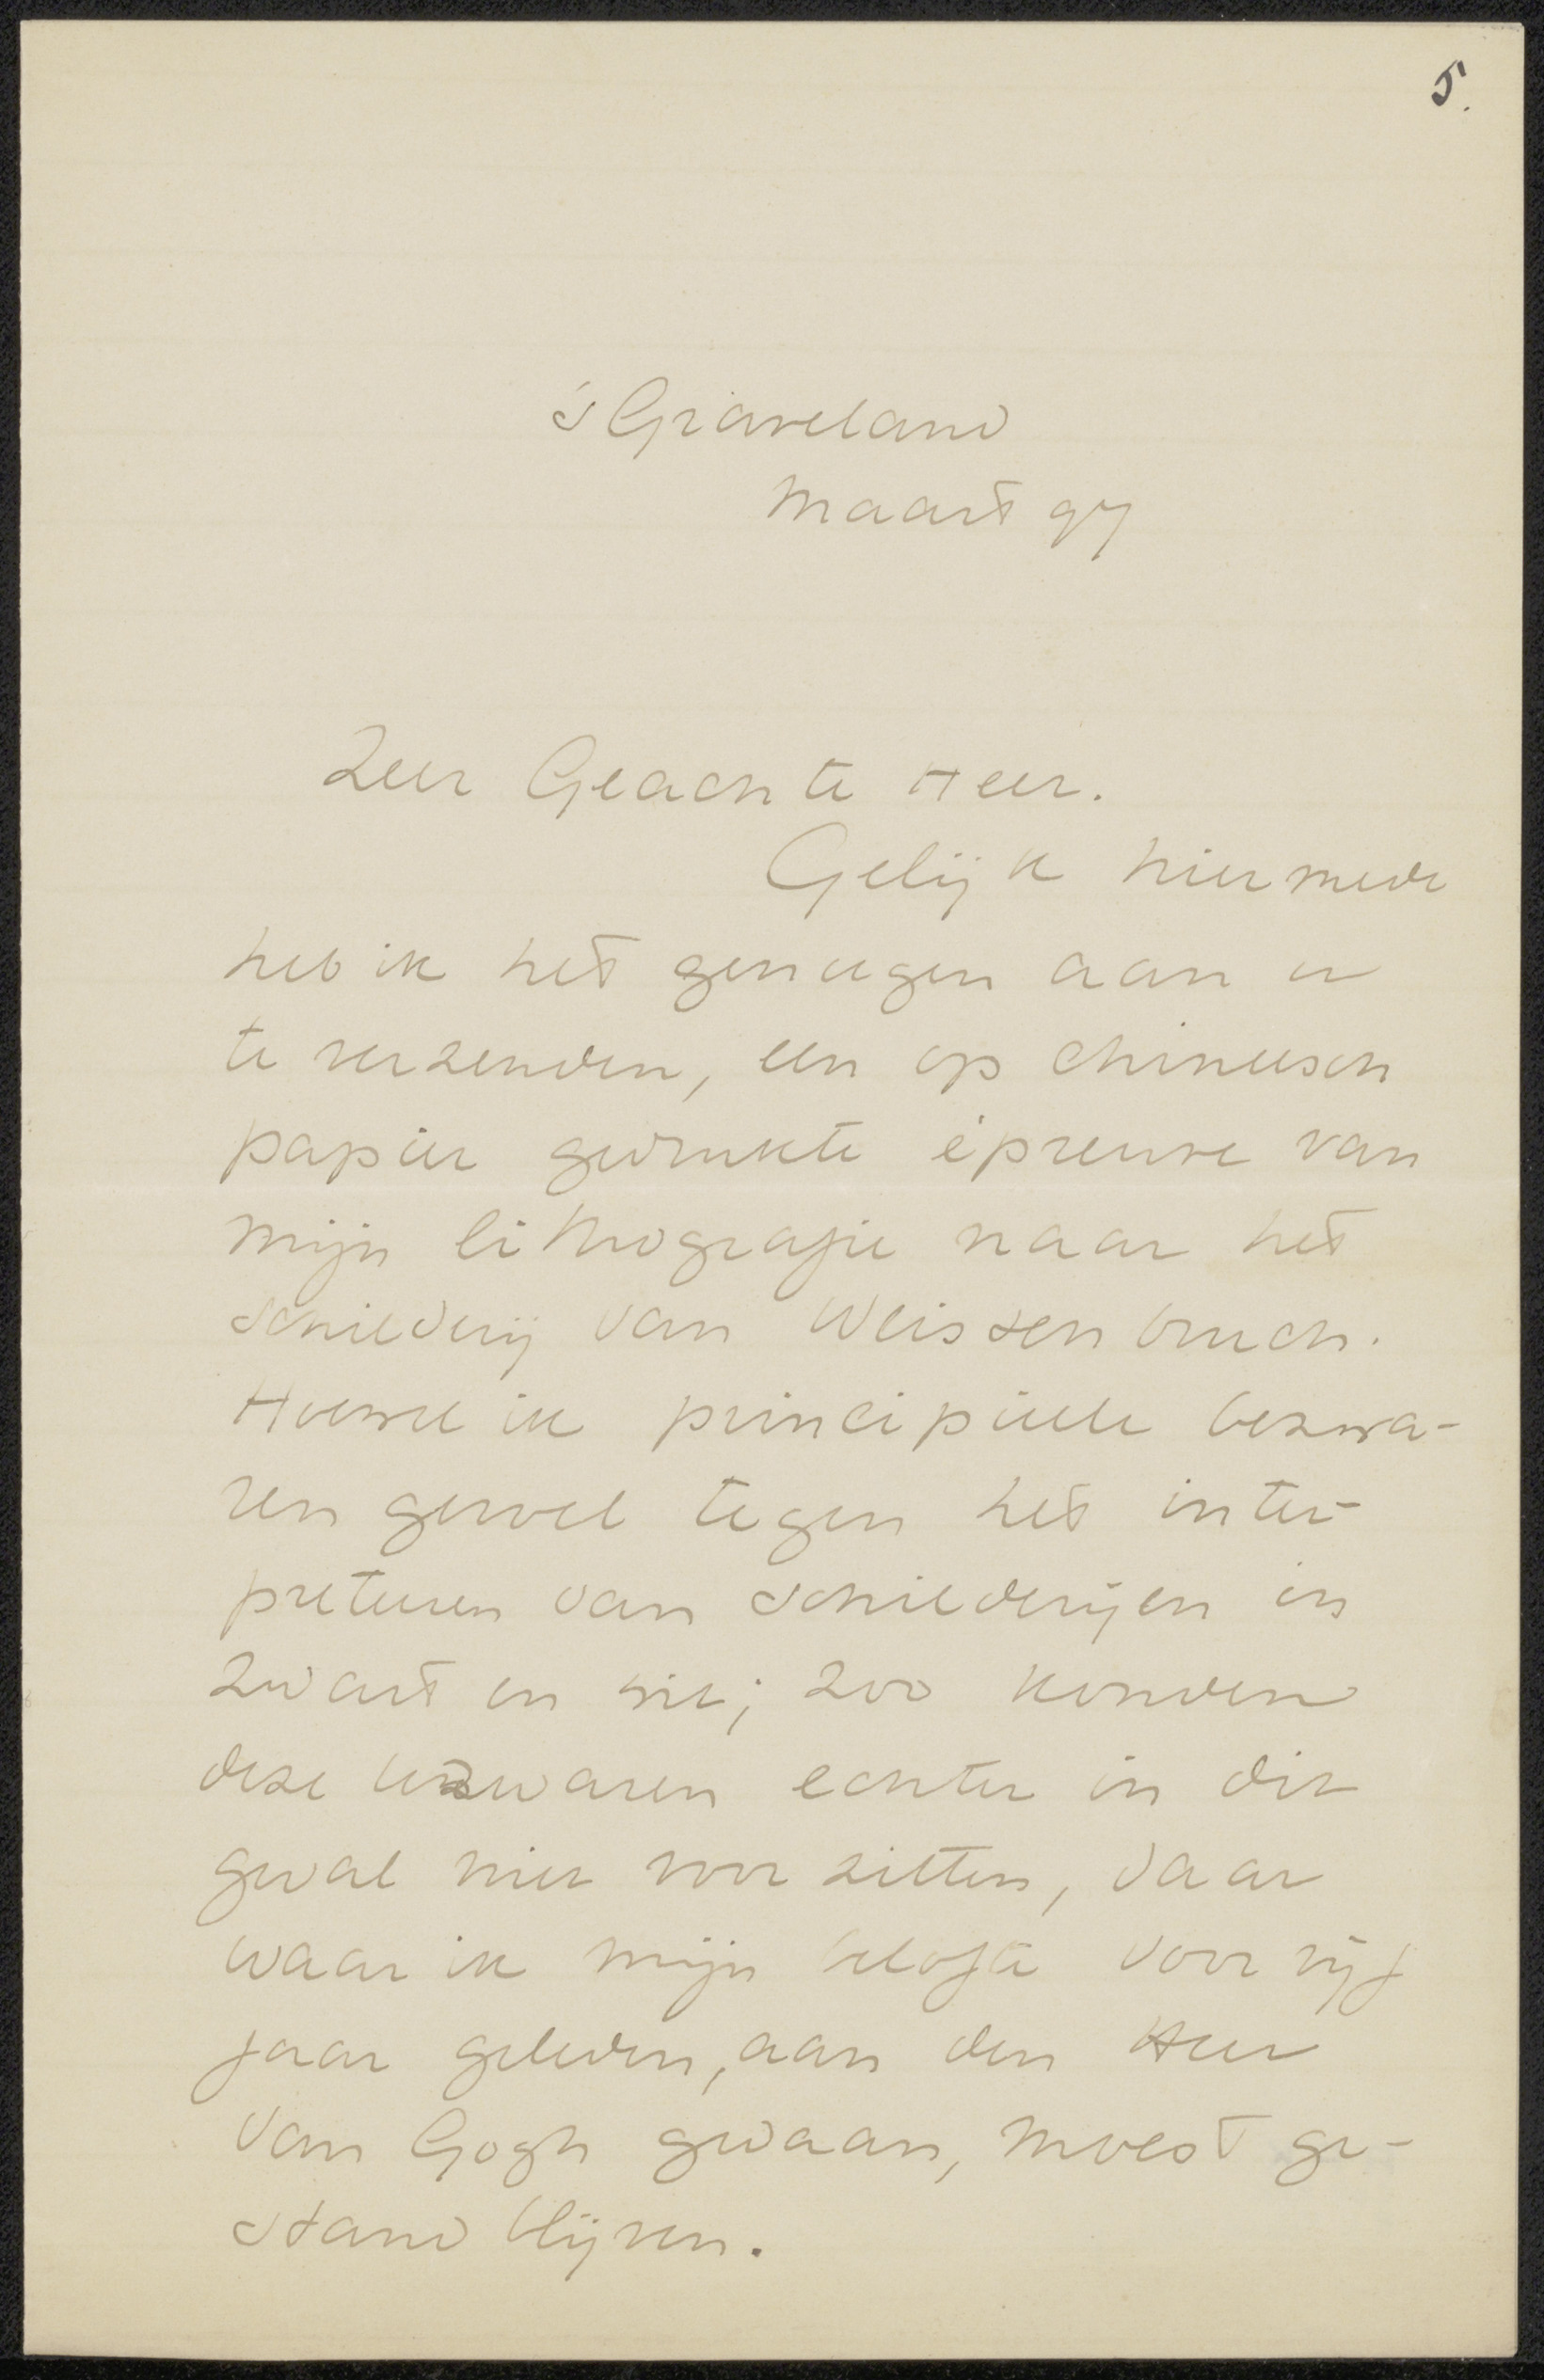 5.
's Graveland
Maart 97
Zeer Geachte Heer.
Gelijk hiermede
heb ik het genoegen aan u
te verzenden, een op chineesch
papier gedrukte épreuve van
mijn lithografie naar het
schilderij van Weissenbruch.
Hoewel ik principieele bezwa-
ren gevoel tegen het inter-
preteeren van schilderijen in
zwart en wit; zoo konden
deze bezwaren echter in dit
geval niet voorzitten, daar
waar ik mijn belofte voor vijf
jaar geleden, aan den Heer
van Gogh gedaan, moest ge-
stand blijven.